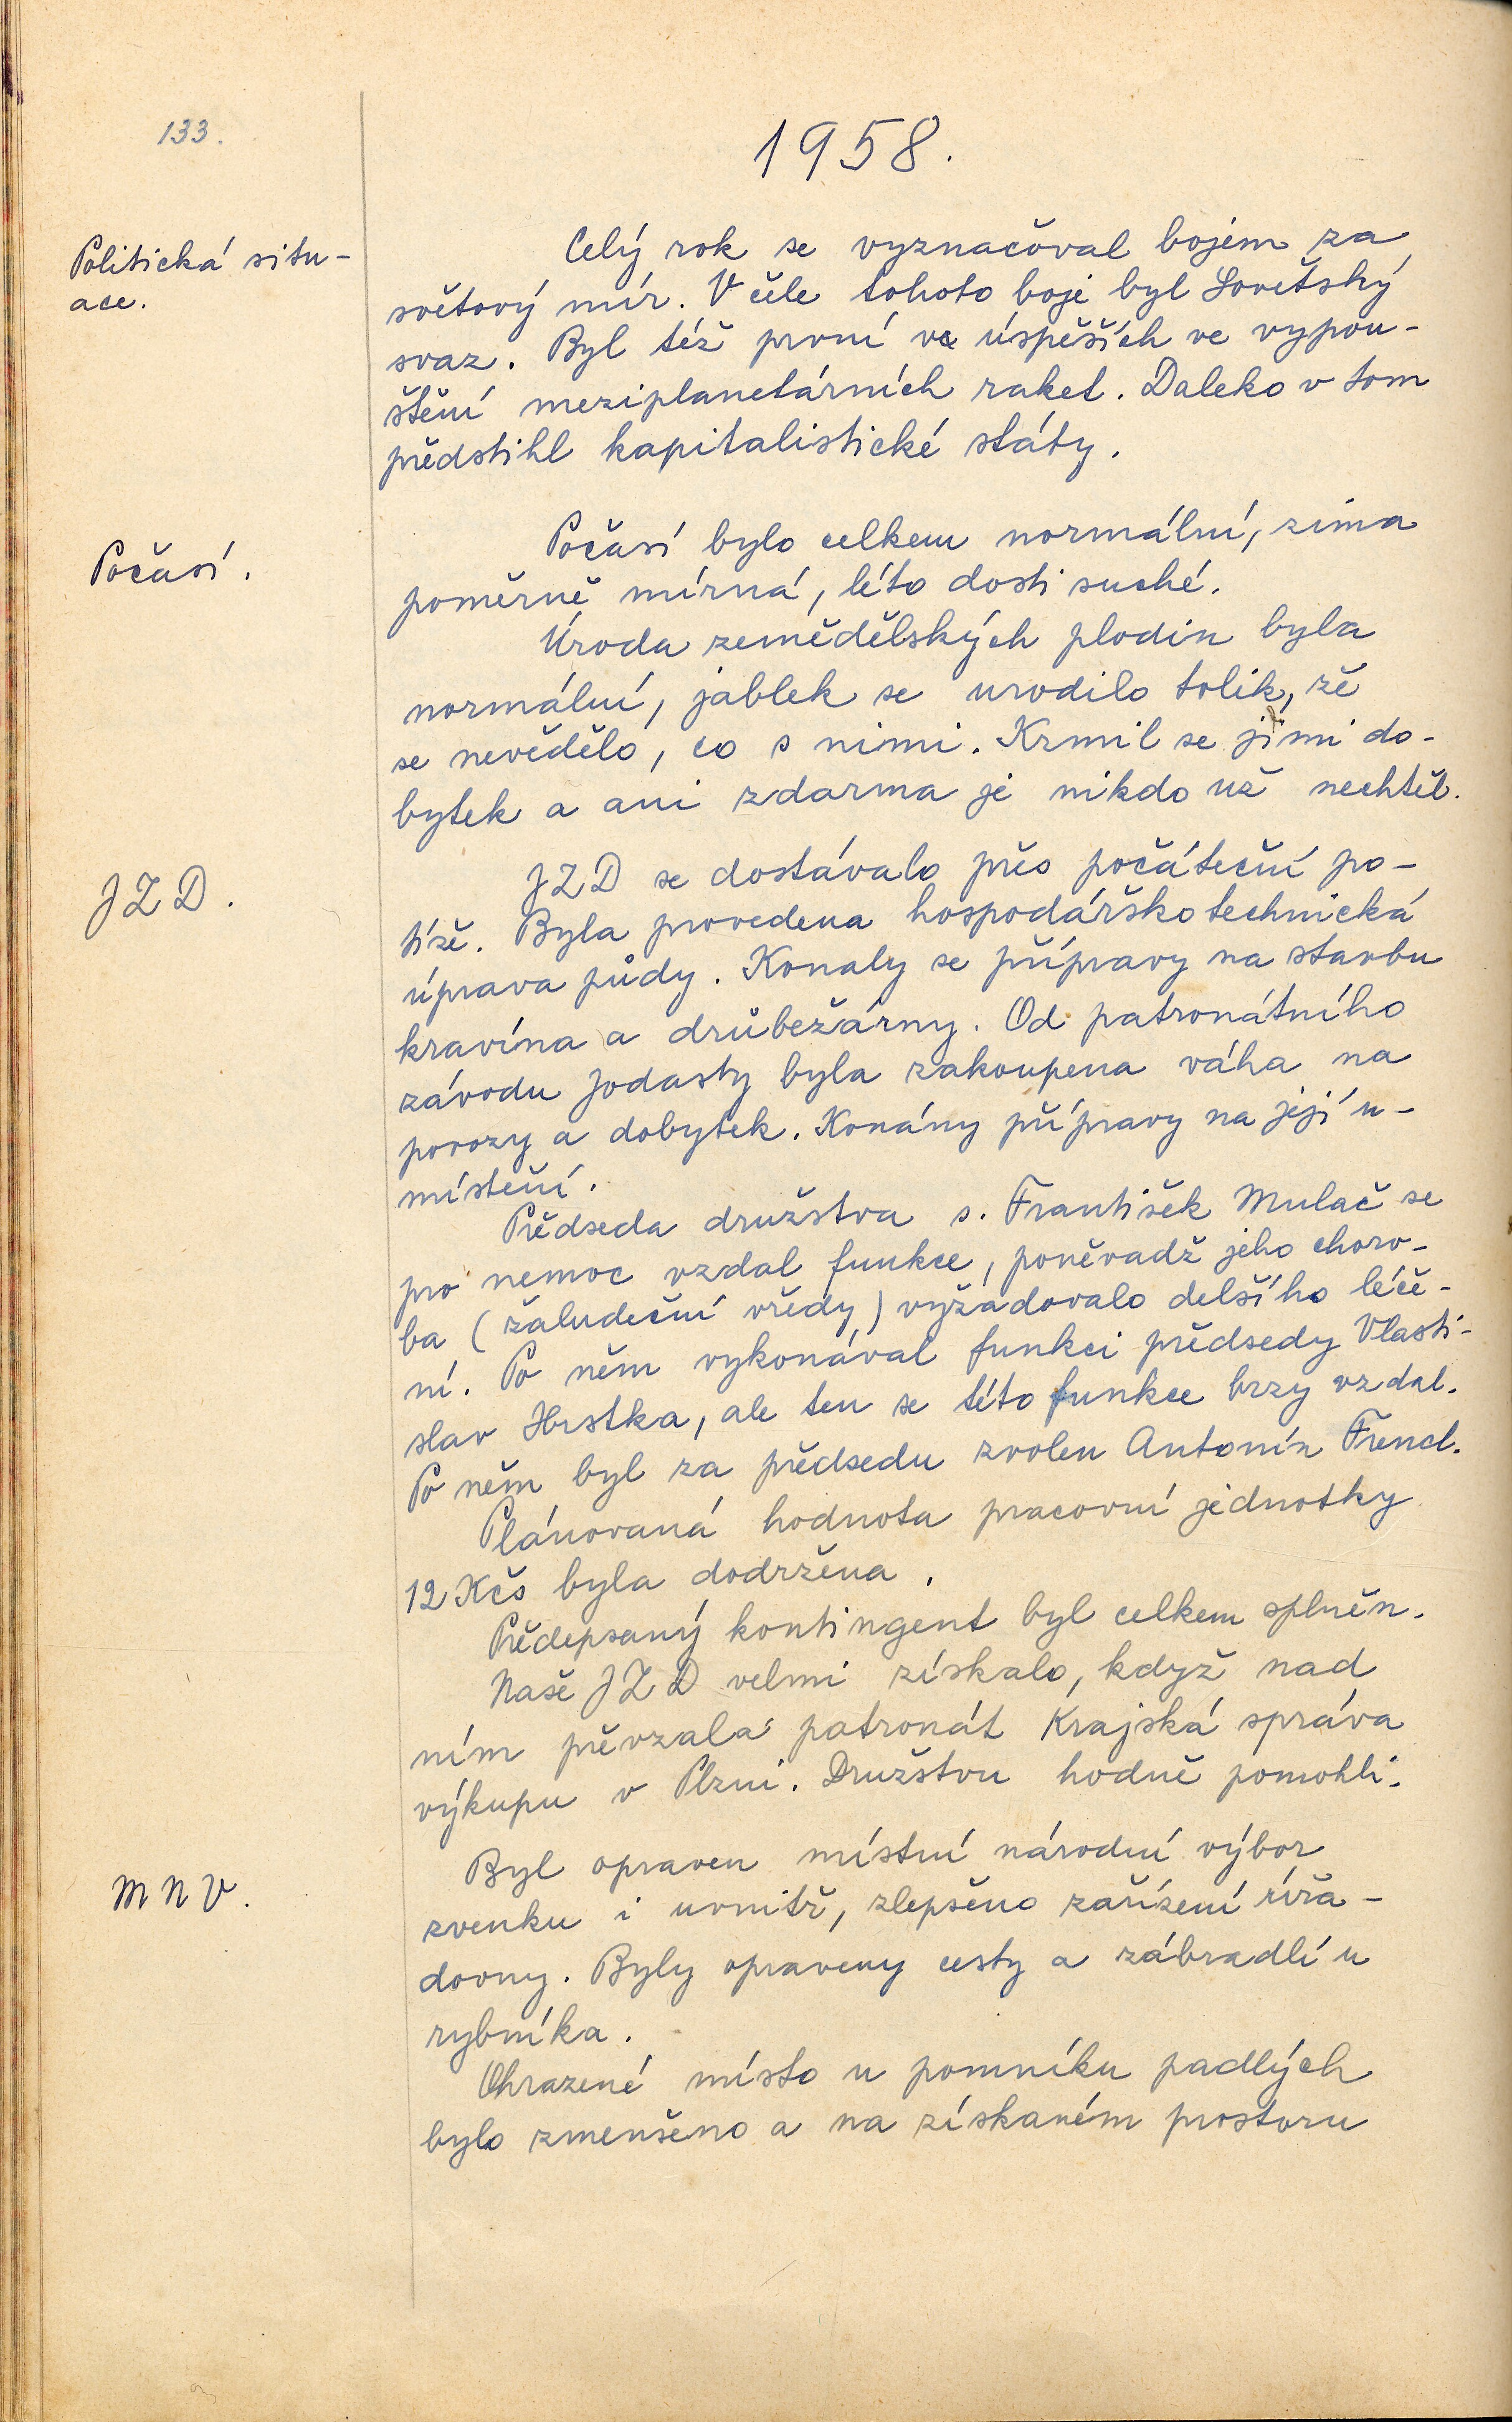 133.
1958.
Politická situ-
ace.
Celý rok se vyznačoval bojem za
světový mír. V čele tohoto boje byl Sovětský
svaz. Byl též první ve úspěších ve vypou-
štění meziplanetárních raket. Daleko v tom
předstihl kapitalistické státy.
Počasí.
Počasí bylo celkem normální, zima
poměrně mírná, léto dosti suché.
Úroda zemědělských plodin byla
normální, jablek se urodilo tolik, že
se nevědělo, co s nimi. Krmil se jimi do-
bytek a ani zdarma je nikdo už nechtěl.
JZD.
JZD se dostávalo přes počáteční po-
tíže. Byla provedena hospodářskotechnická
úprava půdy. Konaly se přípravy na stavbu
kravína a drůbežárny. Od patronátního
závodu Jodasty byla zakoupena váha na
povozy a dobytek. Konány přípravy na její u-
místění.
Předseda družstva s. František Mulač se
pro nemoc vzdal funkce, poněvadž jeho choro-
ba (žaludeční vředy) vyžadovalo delšího léče-
ní. Po něm vykonával funkci předsedy Vlasti-
slav Hrstka, ale ten se této funkce brzy vzdal.
Po něm byl za předsedu zvolen Antonín Frencl.
Plánovaná hodnota pracovní jednotky
12 Kčs byla dodržena.
Předepsaný kontingent byl celkem splněn.
Naše JZD velmi získalo, když nad
ním převzala patronát Krajská správa
výkupu v Plzni. Družstvu hodně pomohli.
MNV.
Byl opraven místní národní výbor
zvenku i uvnitř, zlepšeno zařízení úřa-
dovny. Byly opraveny cesty a zábradlí u
rybníka.
Ohrazené místo u pomníku padlých
bylo zmenšeno a na získaném prostoru